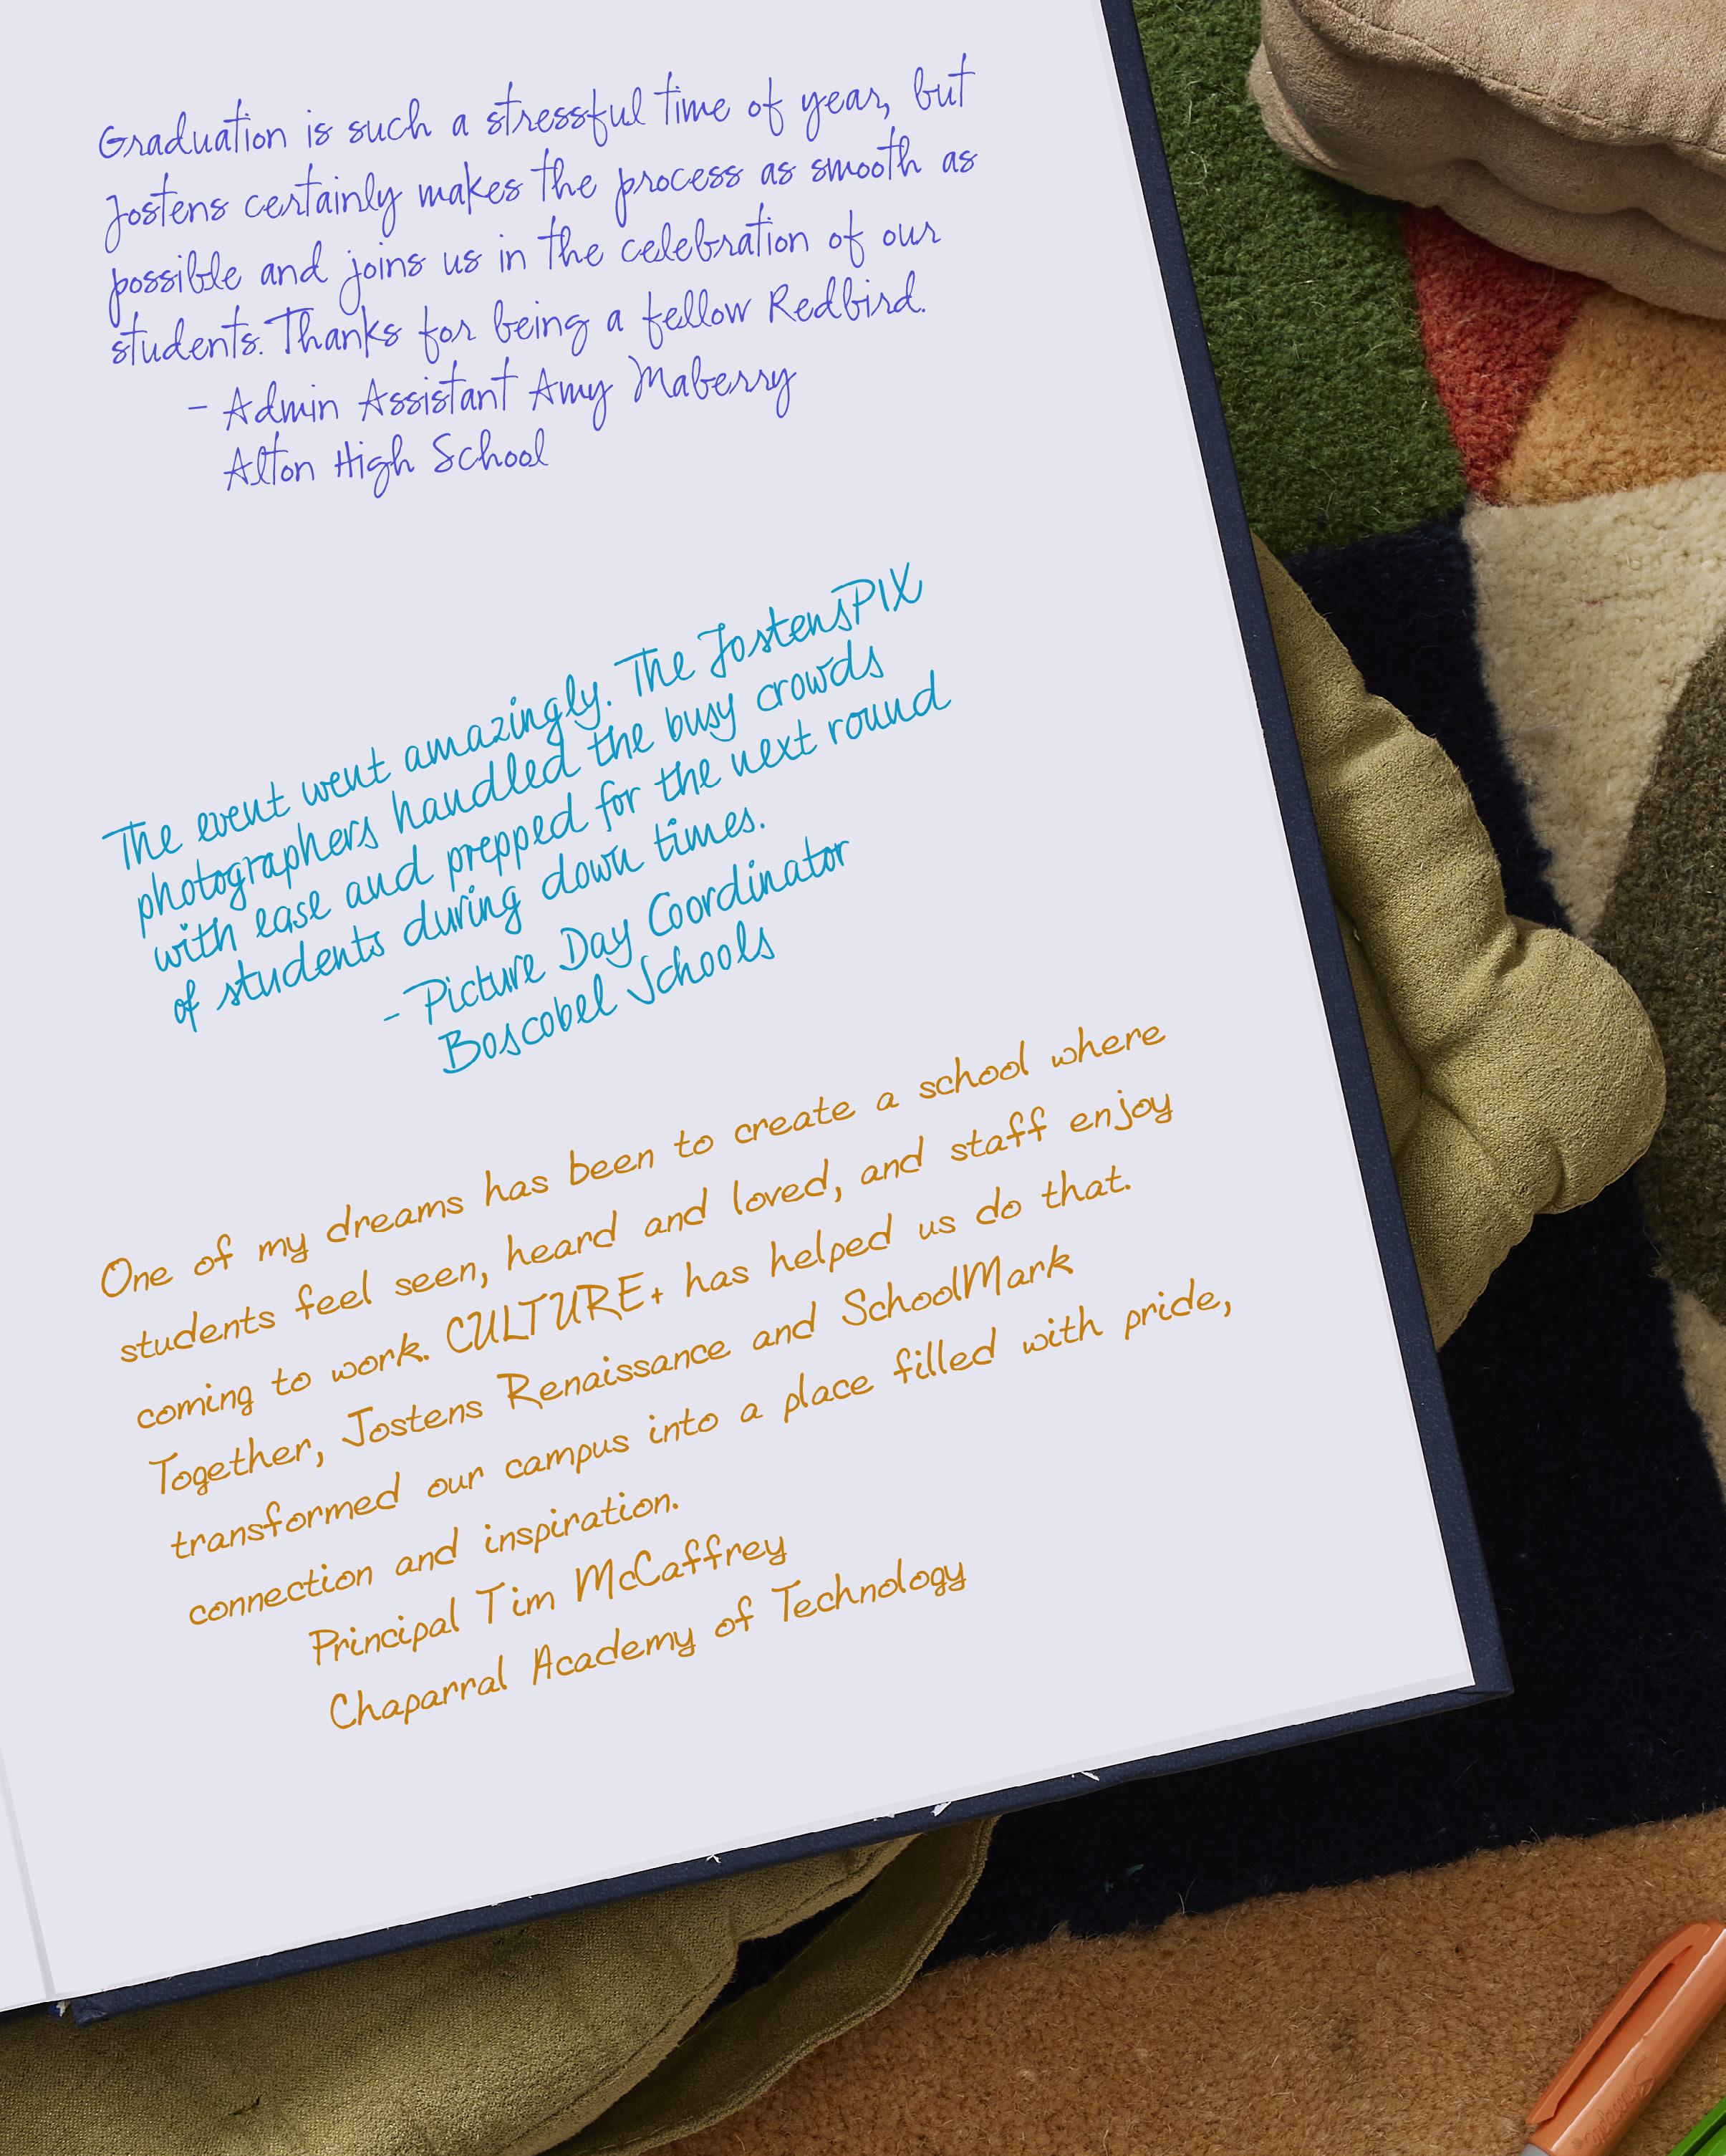 Graduation is such a stressful time of year, but
Jostens certainly makes the process as smooth as
possible and joins us in the celebration of our
students. Thanks for being a fellow Redbird.
- Admin Assistant Amy Maberry
Alton High School
The event went amazingly. The JostensPIX
photographers handled the busy crowds
with ease and prepped for the next round
of students during down times.
- Picture Day Coordinator
Boscobel Schools
One of my dreams has been to create a school where
students feel seen, heard and loved, and staff enjoy
coming to work. CULTURE+ has helped us do that.
Together, Jostens Renaissance and SchoolMark
transformed our campus into a place filled with pride,
connection and inspiration.
Principal Tim McCaffrey
Chaparral Academy of Technology